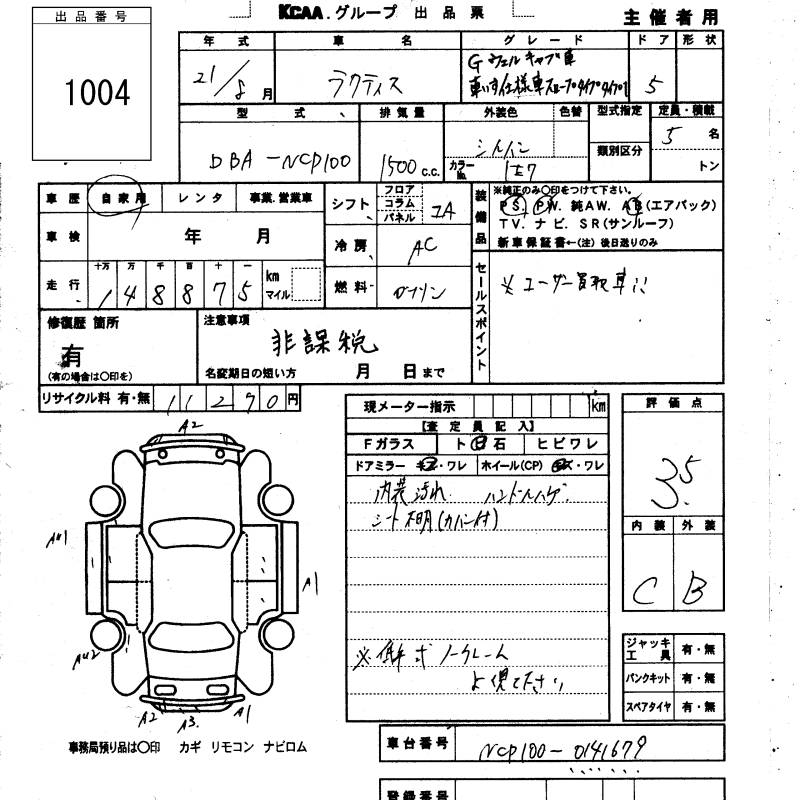 KCAA.グループ 出品票
主催者用
出品番号
1004
年式 車名 グレード ドア 形状
21/8月 ラクティス Gウェルキャブ車
車いす仕様車スロープタイプタイプI 5
型式 排気量 外装色 色替 型式指定 定員・積載
DBA-NCP100 1500c.c. カラーNo. 類別区分 5名
トン
車歴 自家用 レンタ 事業.営業車 シフト フロア コラム パネル IA 装備品 ※純正のみ○印をつけて下さい。
PS. PW. 純AW. AB(エアバック)
TV. ナビ. SR(サンルーフ)
新車保証書←(注)後日送りのみ
車検 年 月 冷房 AC
走行 十万 万 千 百 十 一 km マイル
148875 燃料 ガソリン
セールスポイント ※ユーザー買取車!!
修復歴 箇所
有
(有の場合は○印を)
注意事項
非課税
名変期日の短い方 月 日まで
リサイクル料 有・無 11270円
現メーター指示 km
【査定員記入】
Fガラス ト日石 ヒビワレ
ドアミラー キズ・ワレ ホイール(CP) キズ・ワレ
内装汚れ ハンドルハゲ
シート不明(カバー付)
※低年式ノークレーム
よく見て下さい
評価点
3.5
内装 外装
C B
ジャッキ工具 有・無
パンクキット 有・無
スペアタイヤ 有・無
A2
AU1
A1
AU2
A2 A3. A1
事務局預り品は○印 カギ リモコン ナビロム
車台番号 NCP100-0141679
登録番号